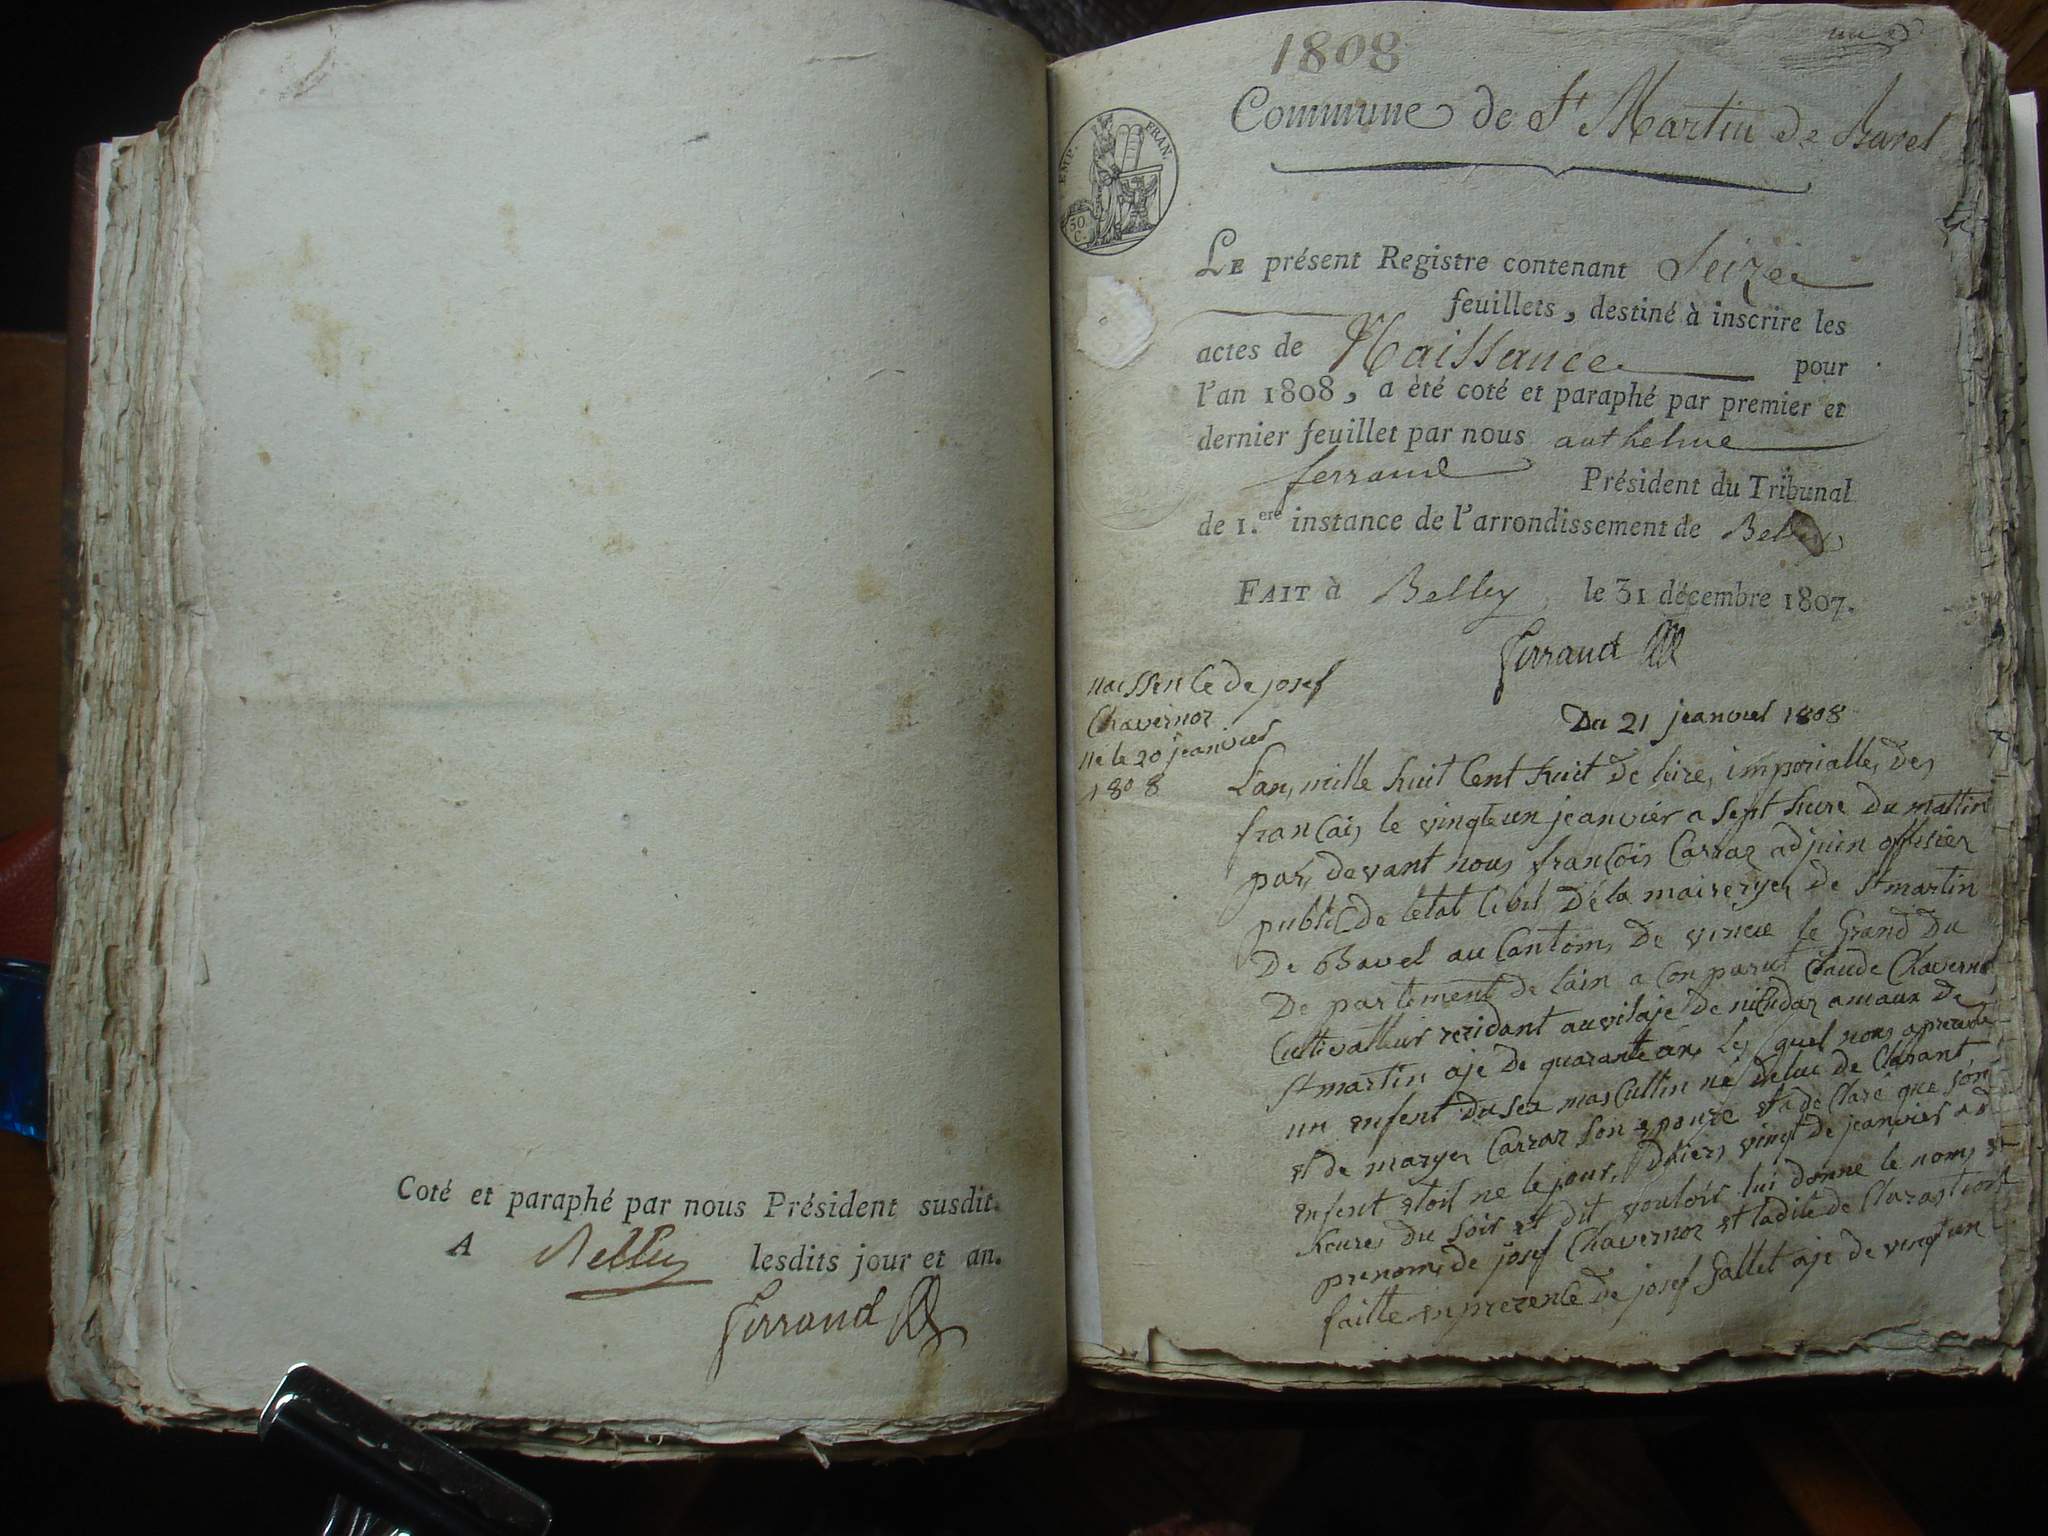 Coté et paraphé par nous Président susdit.
A Belley lesdits jour et an.
Ferrand
1808
Commune de St Martin de Bavel
EMP. FRAN.
50 C.
LE présent Registre contenant Seize
feuillets, destiné à inscrire les
actes de Naissance pour
l'an 1808, a èté coté et paraphé par premier et
dernier feuillet par nous anthelme
ferrand Président du Tribunal
de 1.ere instance de l'arrondissement de Belley
FAIT à Belley le 31 décembre 1807.
Ferrand
Naissen Ce de josef
Chavernoz
Né le 20 jeanvier
1808
Du 21 jeanvier 1808
L'an mille huit Cent huit De leire imporialle des
francais le vingt un jeanviér a sept heure du mattin
par devant nous francois Carraz adjoien offisier
public De letat Cibil Dé la maireryer de St martin
De Bavel au Cantom De virieu le Grand Du
De partement de lain a Conparut Claude Chavernoz
Cultivatteur rezidant au vilaje De
St martin aje De quarante ans les quel nous aprezente
un enfent du sex masCullin né deluc de Clarant
et de maryer Carraz son epouze et a de Claré que son
enfent etoit ne le jour Dhiers vingt de jeanvier a
heures du soir et dit vouloir lui donne le nom et
prenom de josef Chavernoz et ladite de Claration
faitte en prezente De josef Gallet aje de vingt un